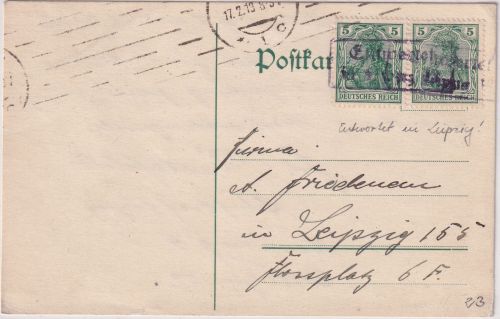 17.2.19
C
Postkar
5 5 5 5
DEUTSCHES REICH DEUTSCHES REICH
Entwertet in Leipzig!
Firma
A. Friedemann
in Leipzig 155
Flossplatz 6 F.
2/3